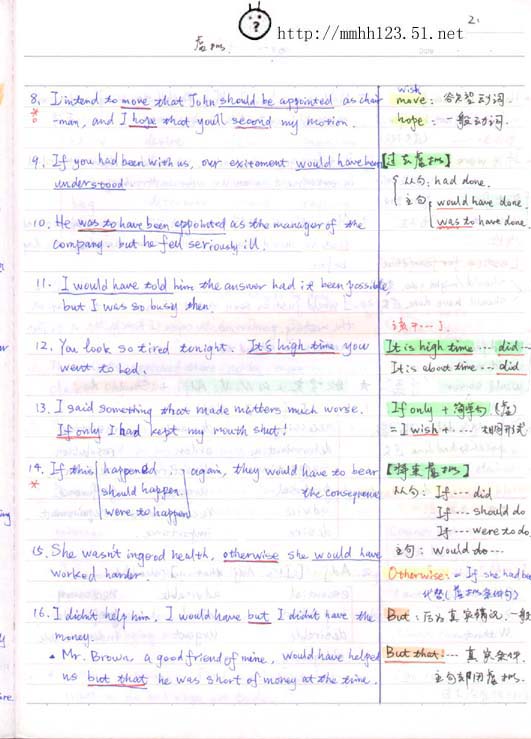 http://mmhh123.51.net
2.
虚拟.
8. I intend to move that John should be appointed as chair
-man, and I hope that you'll second my motion.
wish
move: 欲望动词.
hope: 一般动词.
9. If you had been with us, our exitement would have been
understood
【过去虚拟】
从句: had done.
主句 would have done.
was to have done.
10. He was to have been appointed as the manager of the
company. but he fell seriously ill.
11. I would have told him the answer had it been possible,
but I was so busy then.
该干…了.
12. You look so tired tonight. It's high time you
went to bed.
It is high time … did
It is about time … did
13. I said something that made matters much worse.
If only I had kept my mouth shut!
If only + 简单句.(虚)
= I wish + … 相同形式
14. If this happened again, they would have to bear
should happen
the consequence
were to happen
【将来虚拟】
从句: If … did
If … should do
If … were to do.
主句: would do …
15. She wasn't in good health, otherwise she would have
worked harder
Otherwise: = If she had be
代替(虚拟条件句)
16. I didn't help him, I would have but I didn't have the
money.
But: 后为真实情况, 一般
• Mr. Brown, a good friend of mine, would have helped
us but that he was short of money at the time.
But that: … 真实条件.
主句却用虚拟.